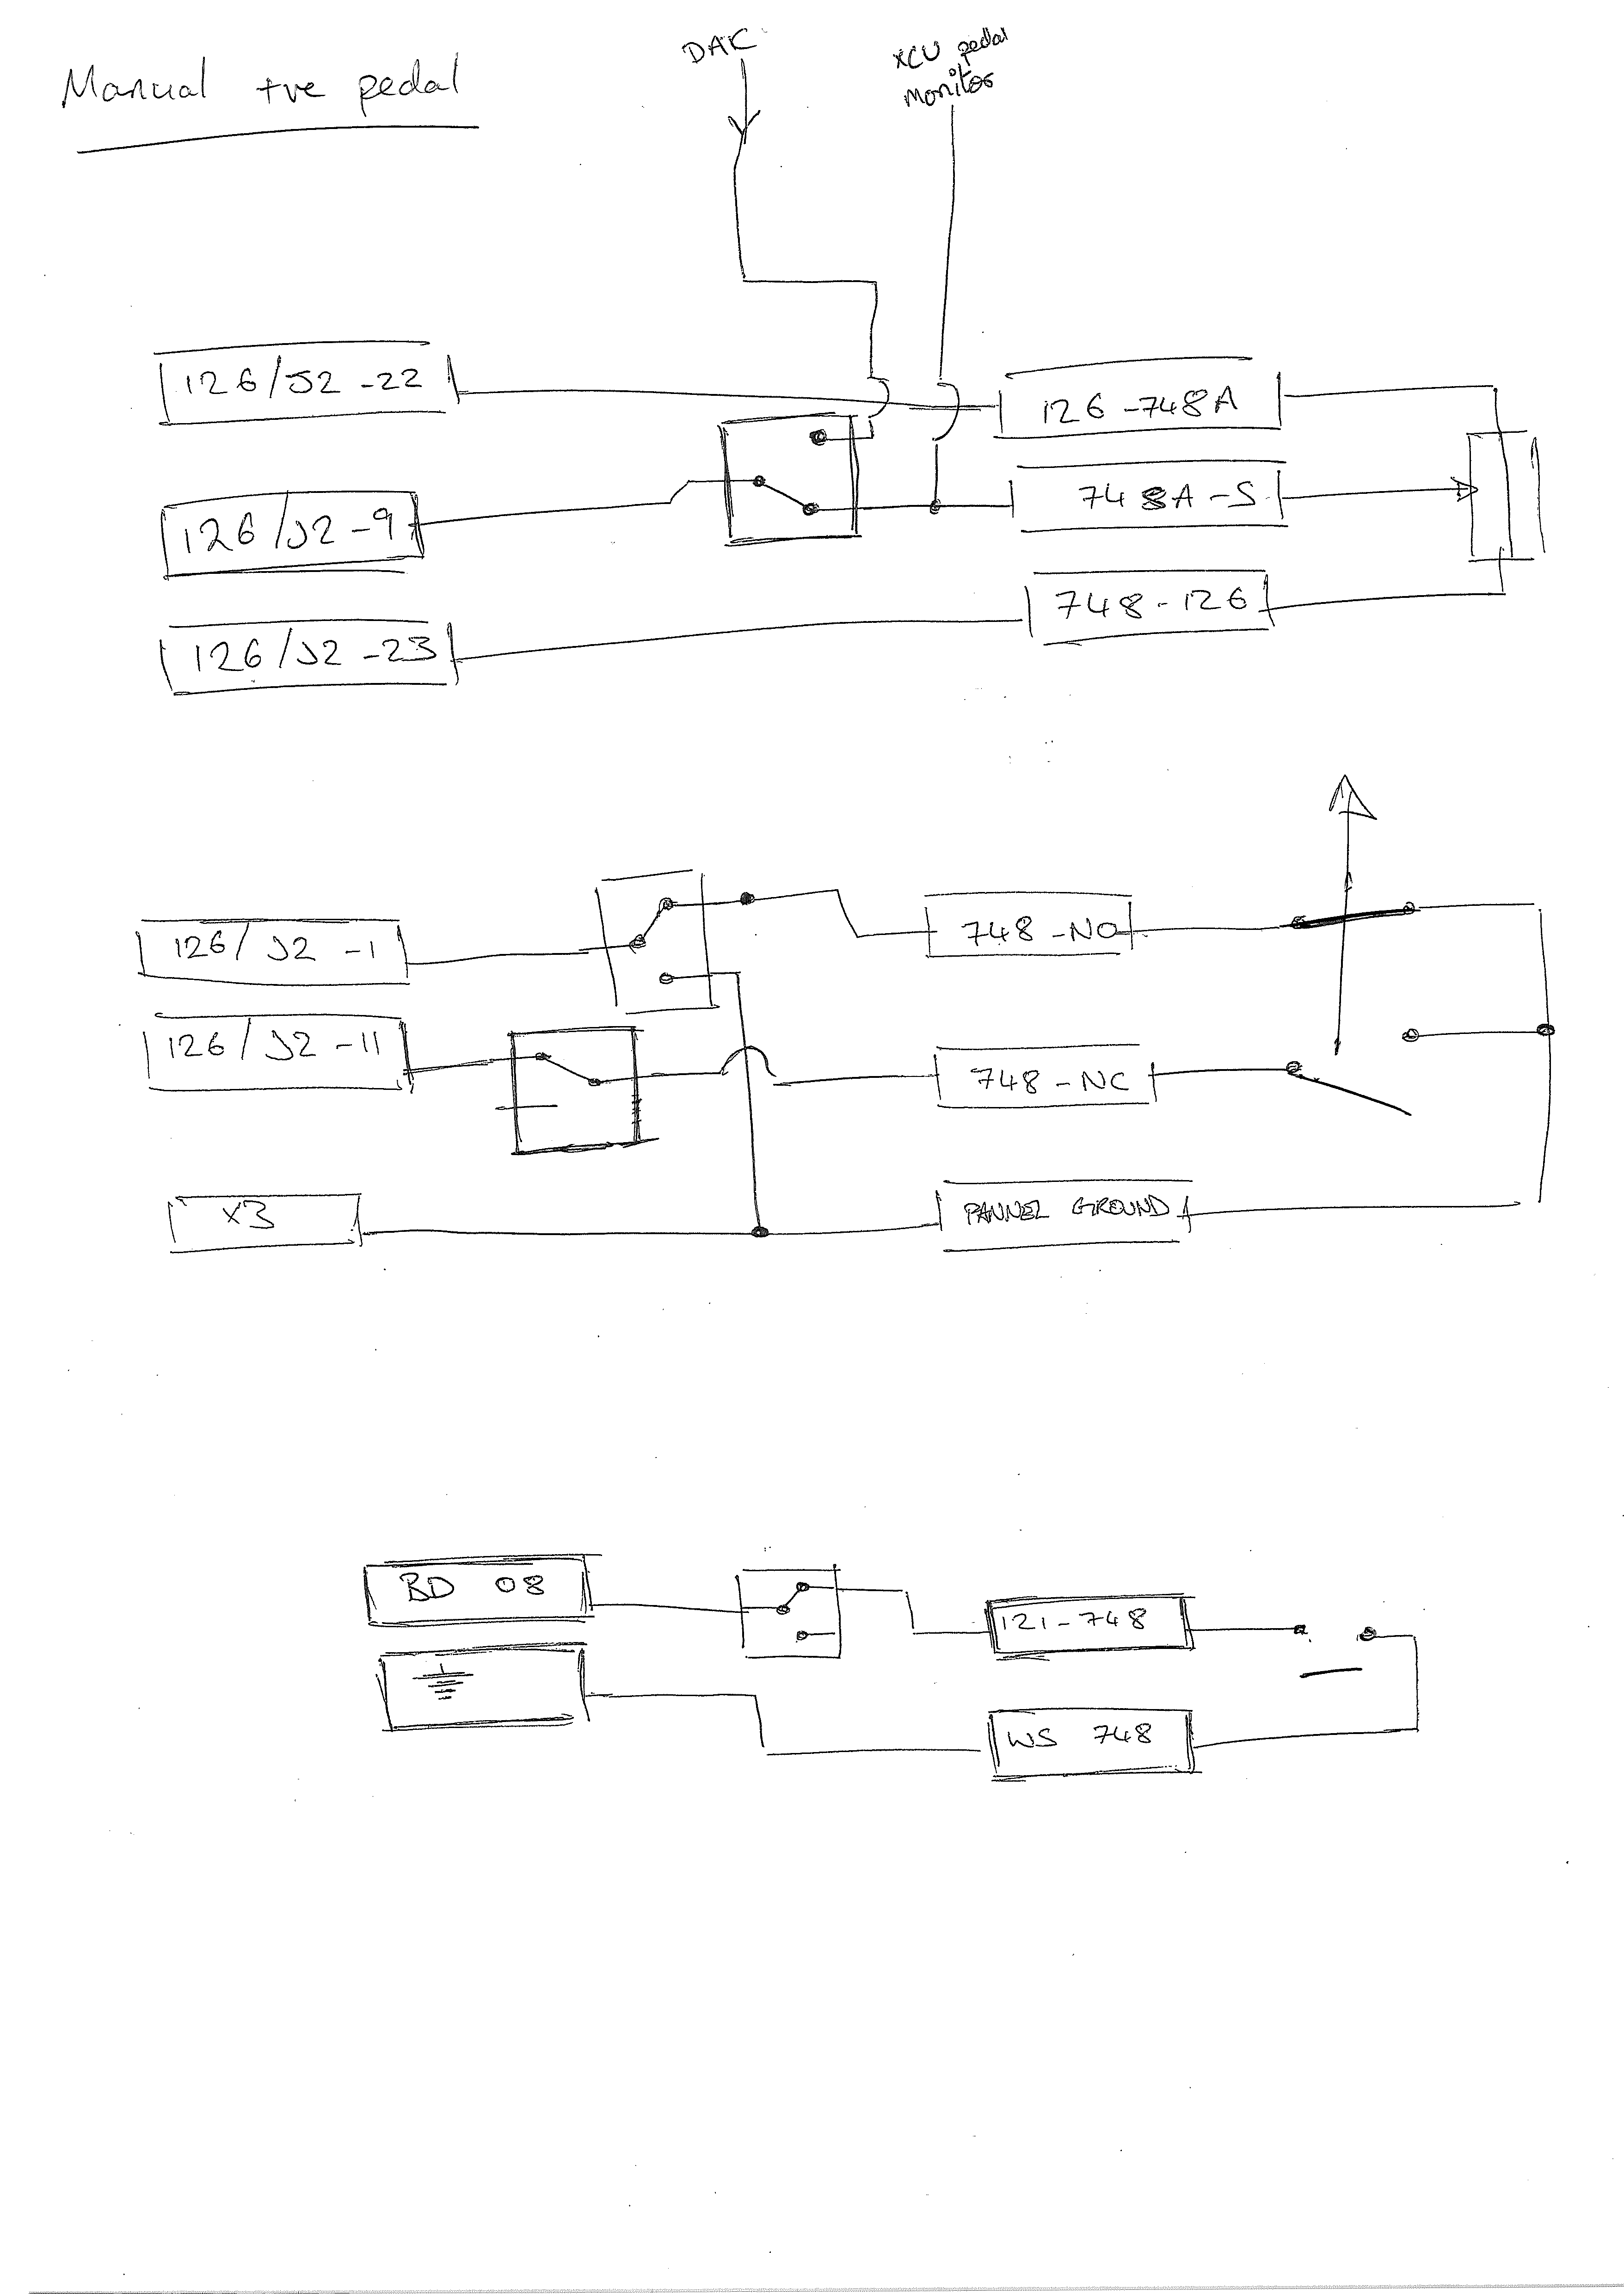 Manual +ve pedal
DAC
XCU pedal
monitor
126/J2-22
126-748A
126/J2-9
748A-S
126/J2-23
748-126
126/J2-1
748-NO
126/J2-11
748-NC
X3
PANNEL GROUND
BD 08
121-748
WS 748